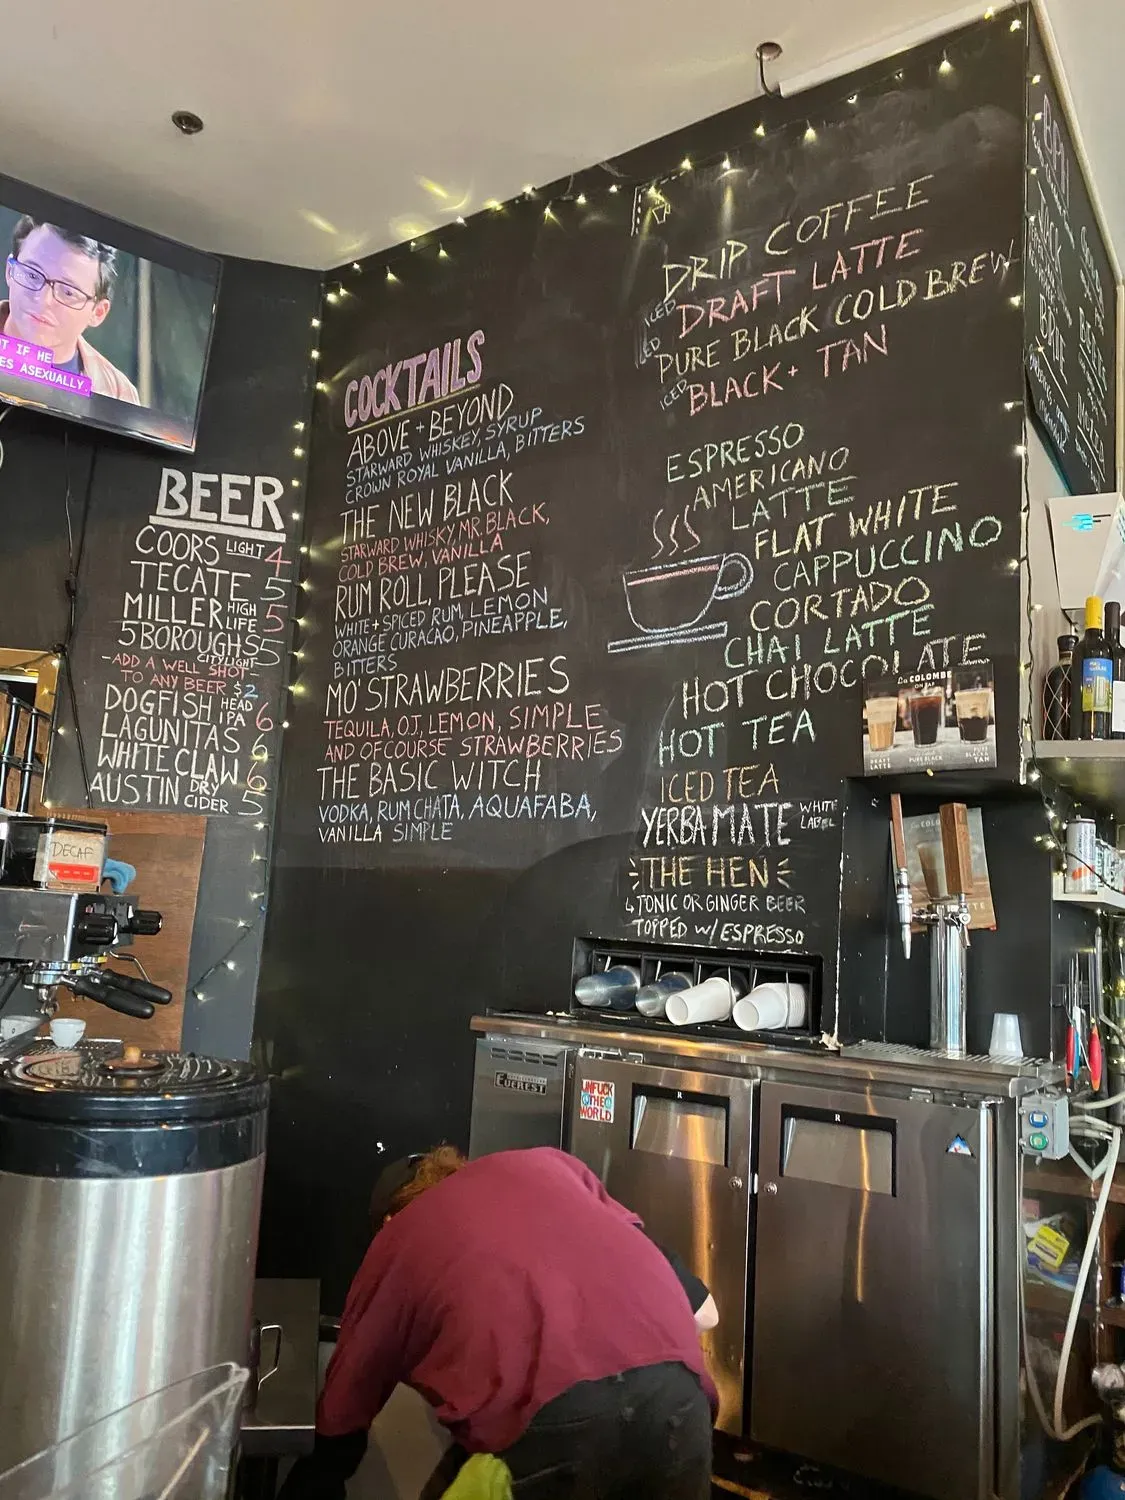 T IF HE
ES ASEXUALLY.
BEER
COORS LIGHT 4
TECATE 5
MILLER HIGH LIFE 5
5BOROUGHS CITYLIGHT 5
-ADD A WELL SHOT-
TO ANY BEER $2
DOGFISH HEAD IPA 6
LAGUNITAS 6
WHITE CLAW 6
AUSTIN DRY CIDER 5
COCKTAILS
ABOVE + BEYOND
STARWARD WHISKEY, SYRUP
CROWN ROYAL VANILLA, BITTERS
THE NEW BLACK
STARWARD WHISKY, MR. BLACK,
COLD BREW, VANILLA
RUM ROLL, PLEASE
WHITE + SPICED RUM, LEMON
ORANGE CURACAO, PINEAPPLE,
BITTERS
MO' STRAWBERRIES
TEQUILA, O.J., LEMON, SIMPLE
AND OF COURSE STRAWBERRIES
THE BASIC WITCH
VODKA, RUM CHATA, AQUAFABA,
VANILLA SIMPLE
DRIP COFFEE
ICED DRAFT LATTE
PURE BLACK COLD BREW
ICED BLACK + TAN
ESPRESSO
AMERICANO
LATTE
FLAT WHITE
CAPPUCCINO
CORTADO
CHAI LATTE
HOT CHOCOLATE
HOT TEA
ICED TEA
YERBA MATE WHITE LABEL
THE HEN
TONIC OR GINGER BEER
TOPPED W/ ESPRESSO
La COLOMBE
ON TAP
DRAFT LATTE
PURE BLACK
PURE TAN
DECAF
EVEREST
UNFUCK
THE
WORLD